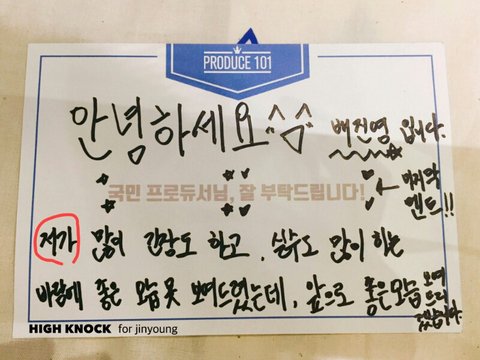 PRODUCE 101
안녕하세요^^
배진영 입니다.
국민 프로듀서님, 잘 부탁드립니다!
마지막
엔드!!
저가 많이 긴장도 하고, 실수도 많이 하는
바람에 좋은 모습 못 보여드렸는데, 앞으로 좋은모습 보여
드리
겠습니다.
HIGH KNOCK for jinyoung